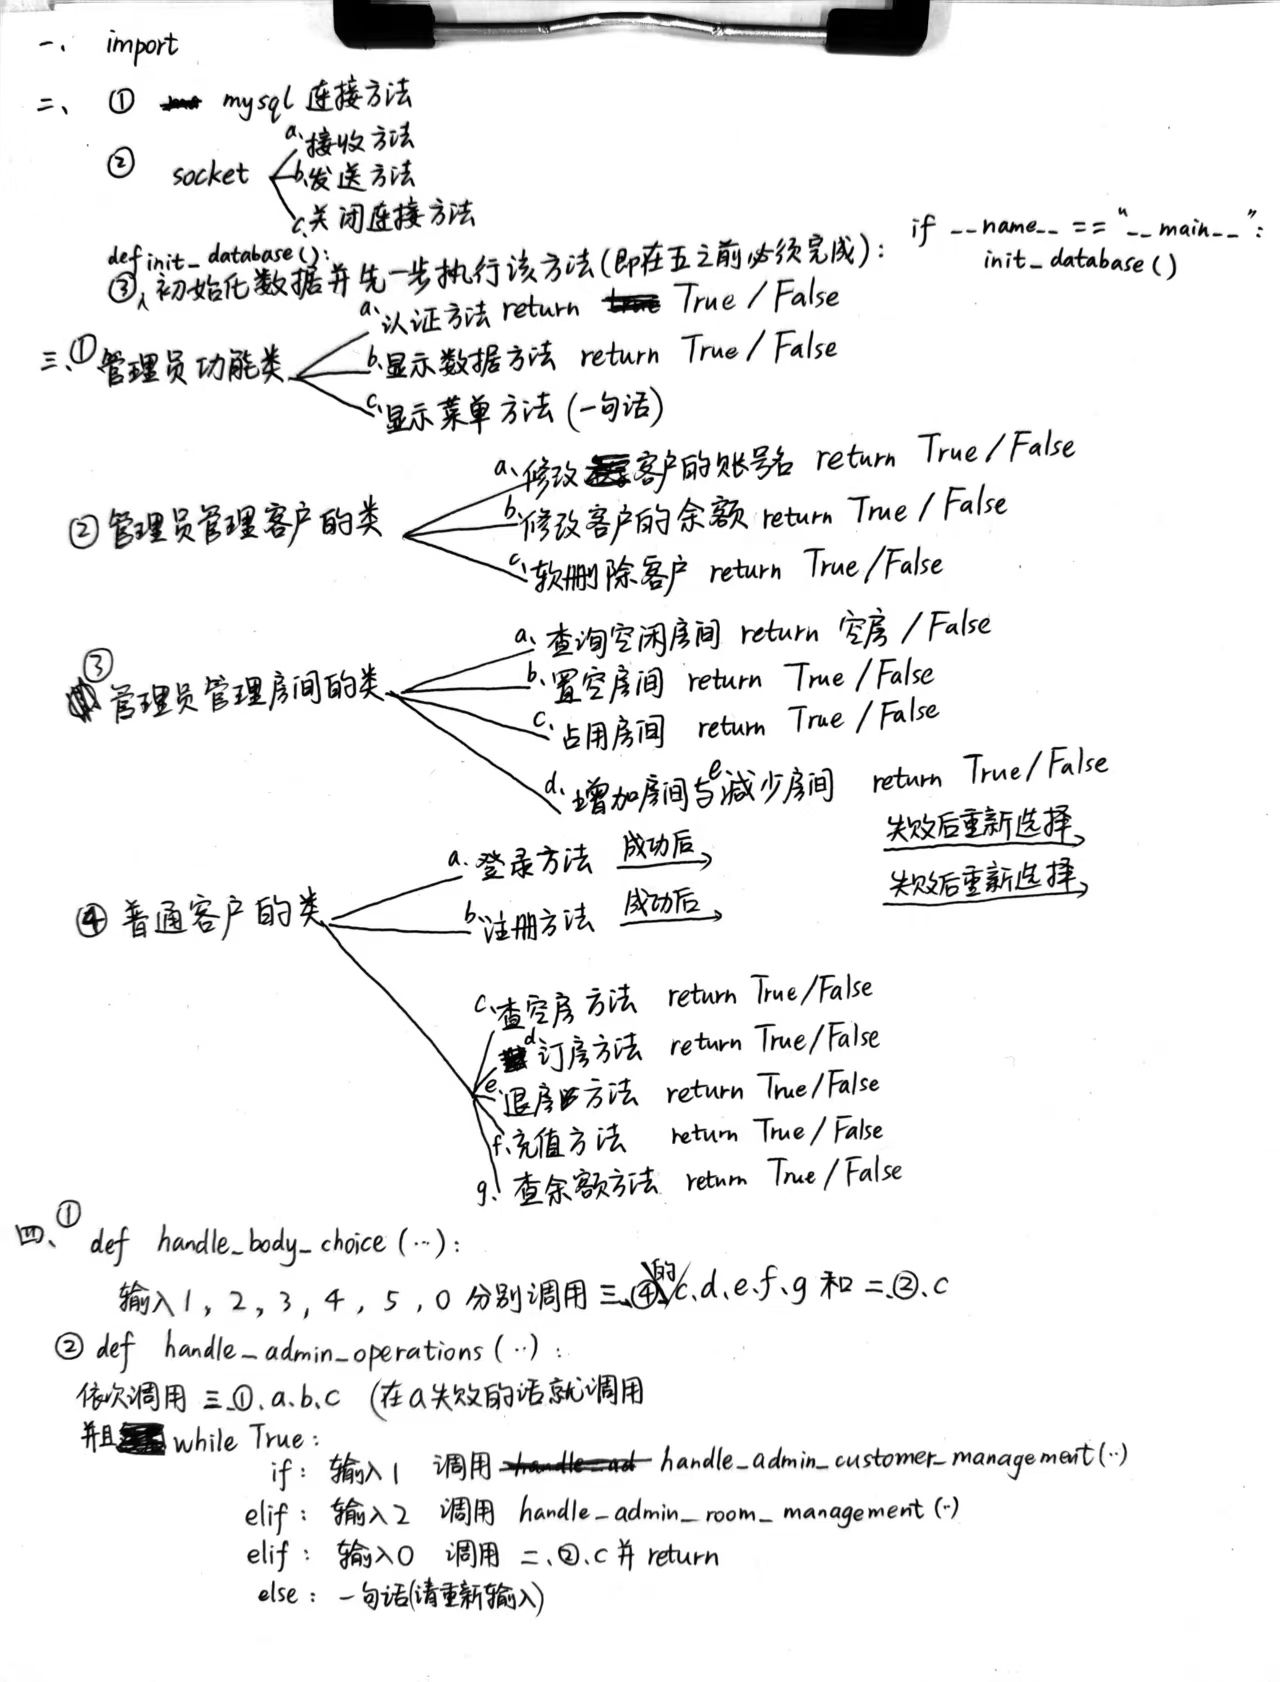 一、 import
二、 ① mysql 连接方法
② socket
a、接收方法
b、发送方法
c、关闭连接方法
def init_database():
③、初始化数据并先一步执行该方法(即在五之前必须完成):
if __name__ == "__main__":
init_database()
三、①管理员功能类
a、认证方法 return True / False
b、显示数据方法 return True / False
c、显示菜单方法 (一句话)
②管理员管理客户的类
a、修改客户的账号名 return True / False
b、修改客户的余额 return True / False
c、软删除客户 return True / False
③管理员管理房间的类
a、查询空闲房间 return 空房 / False
b、置空房间 return True / False
c、占用房间 return True / False
d、增加房间与e减少房间 return True / False
④ 普通客户的类
a、登录方法 成功后 失败后重新选择
b、注册方法 成功后 失败后重新选择
c、查空房方法 return True/False
d 订房方法 return True/False
e、退房方法 return True/False
f、充值方法 return True / False
g、查余额方法 return True / False
四、① def handle_body_choice (…):
输入1, 2, 3, 4, 5, 0 分别调用 三、④的c、d、e、f、g 和 二、②、c
② def handle_admin_operations (..):
依次调用 三、①、a、b、c (在a失败的话就调用
并且 while True:
if: 输入1 调用 handle_admin_customer_management(..)
elif: 输入2 调用 handle_admin_room_management(..)
elif: 输入0 调用 二、②、c 并 return
else: 一句话(请重新输入)